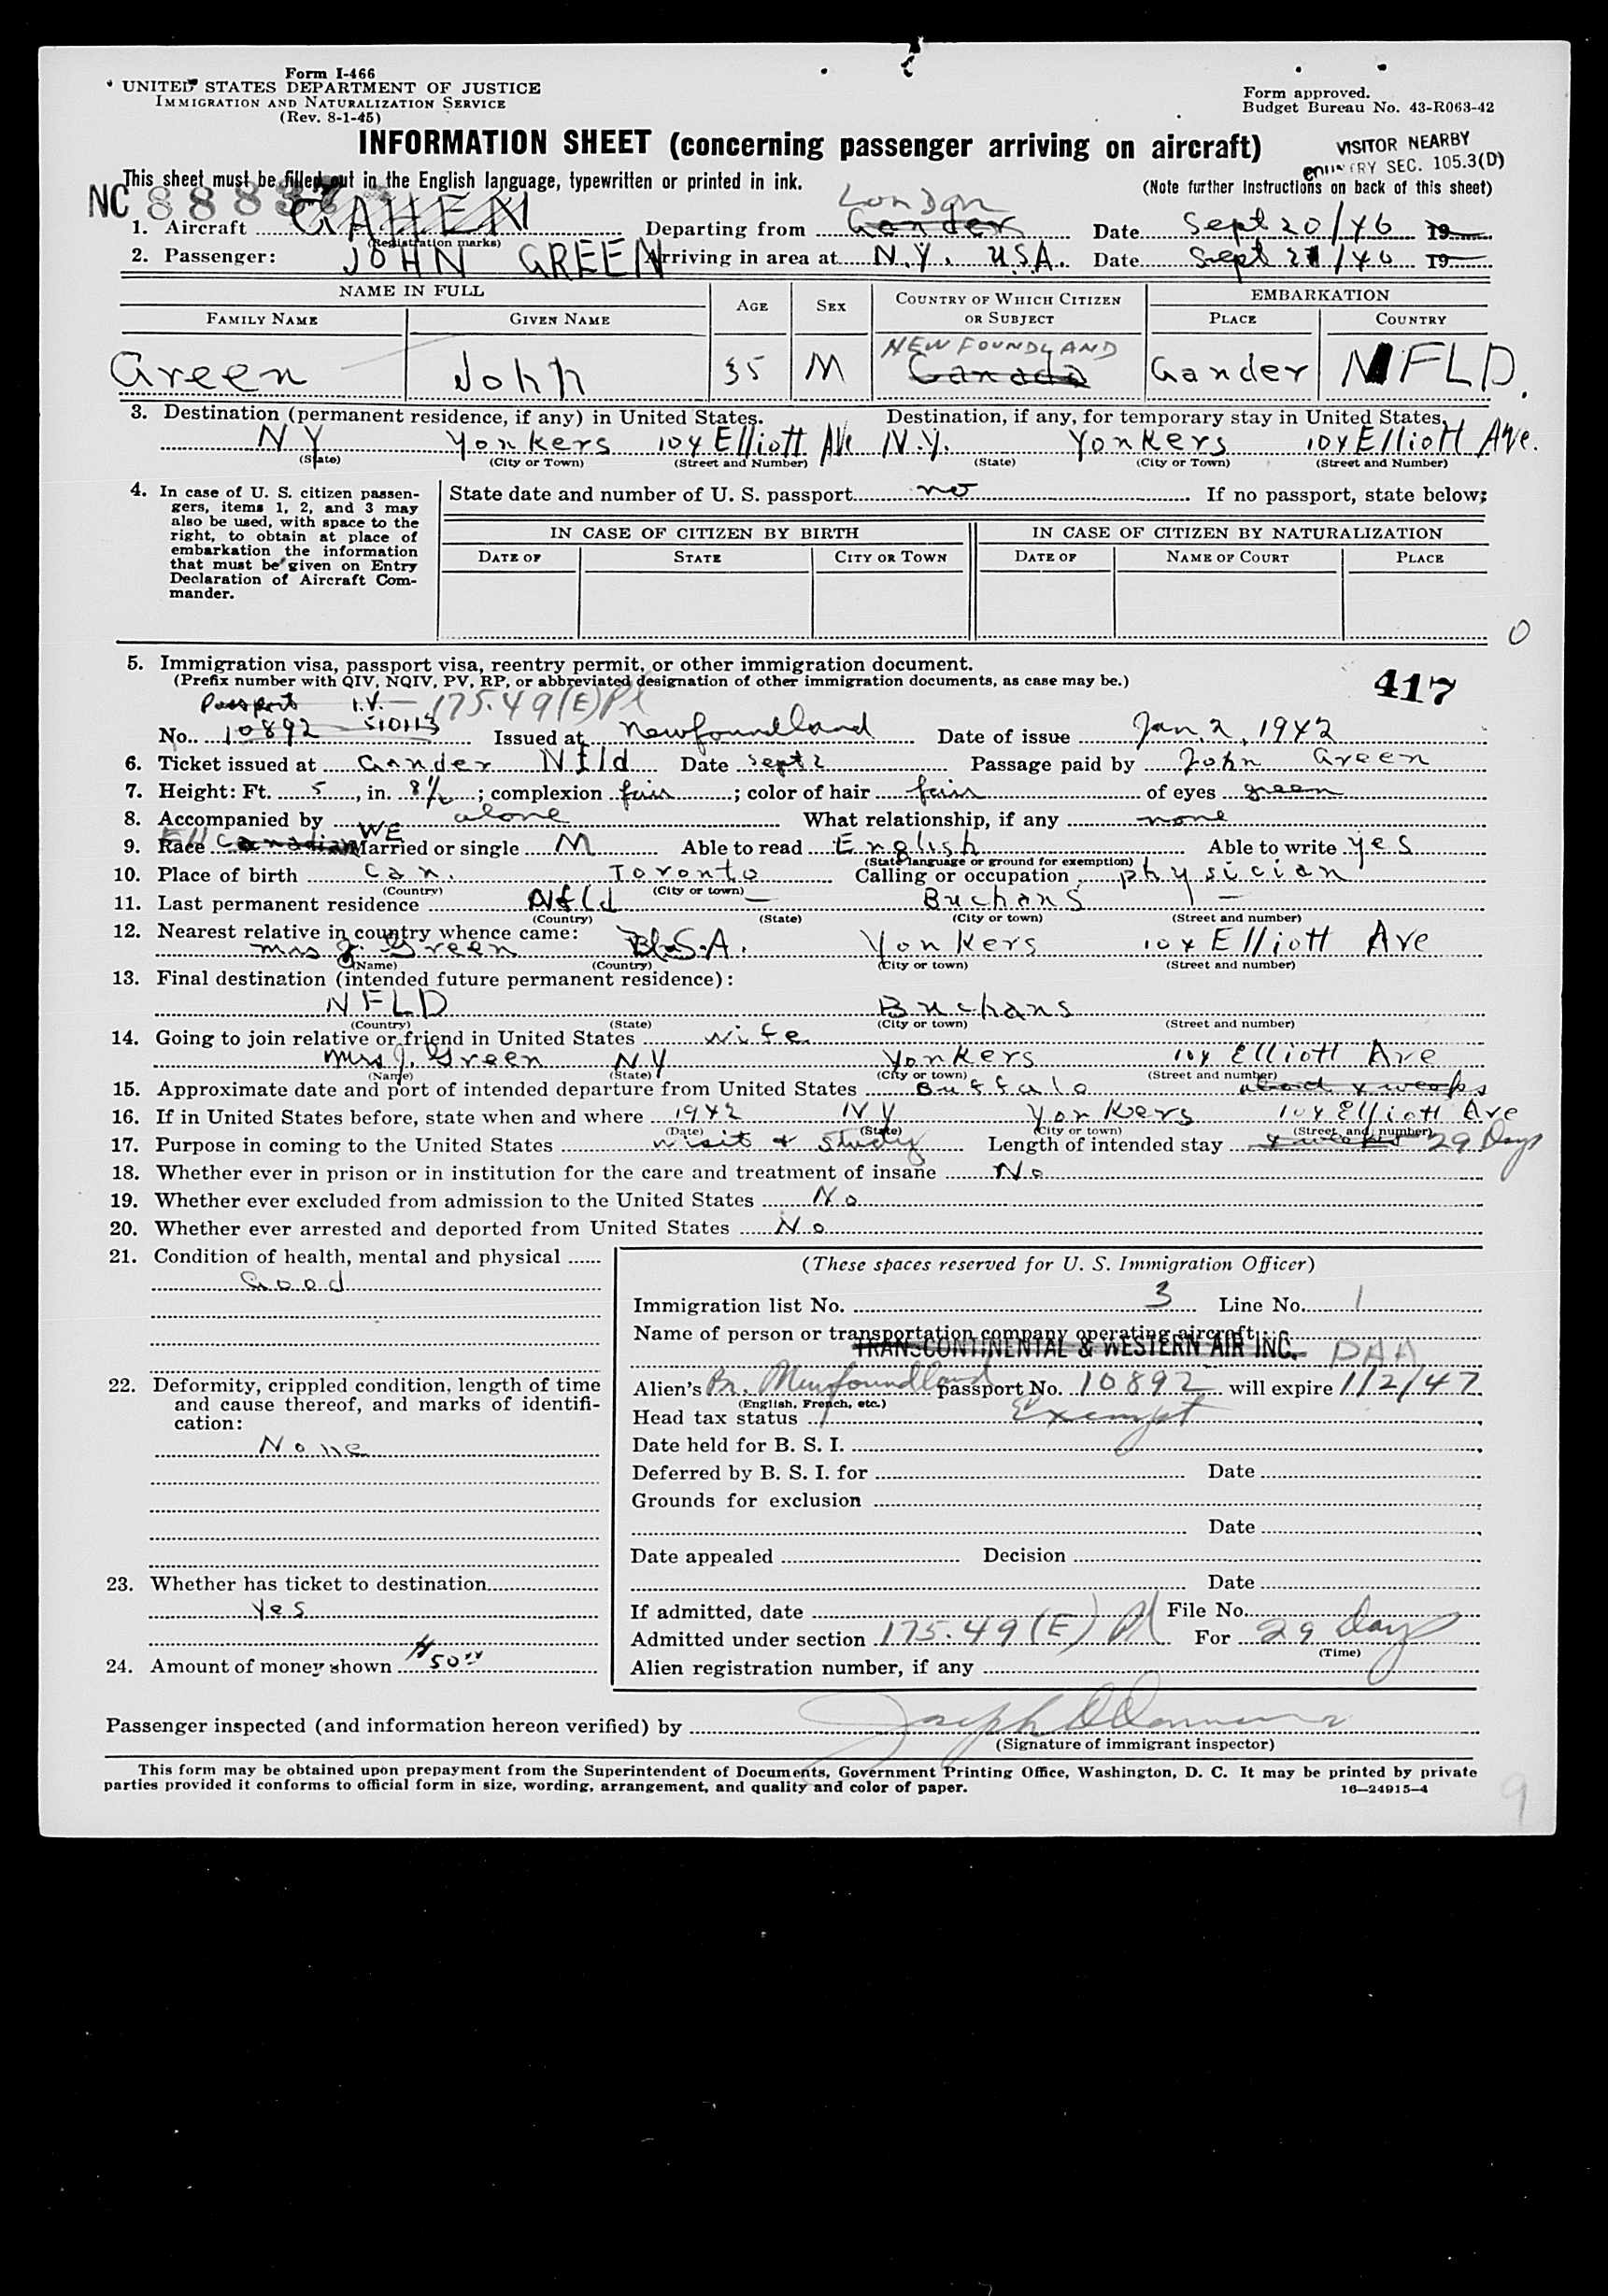 Form I-466
UNITED STATES DEPARTMENT OF JUSTICE
IMMIGRATION AND NATURALIZATION SERVICE
(Rev. 8-1-45)
Form approved.
Budget Bureau No. 43-R063-42
INFORMATION SHEET (concerning passenger arriving on aircraft)
VISITOR NEARBY
COUNTRY SEC. 105.3(D)
This sheet must be filled out in the English language, typewritten or printed in ink.
(Note further instructions on back of this sheet)
NC 88837
1. Aircraft GAHEN Departing from Gander London Date Sept 20/46 19
(Registration marks)
2. Passenger: JOHN GREEN Arriving in area at N.Y. U.S.A. Date Sept 21/46 19
NAME IN FULL AGE SEX COUNTRY OF WHICH CITIZEN OR SUBJECT EMBARKATION
FAMILY NAME GIVEN NAME PLACE COUNTRY
NEWFOUNDLAND
Green John 35 M Canada Gander NFLD.
3. Destination (permanent residence, if any) in United States. Destination, if any, for temporary stay in United States.
NY Yonkers 104 Elliott Ave N.Y. Yonkers 104 Elliott Ave.
(State) (City or Town) (Street and Number) (State) (City or Town) (Street and Number)
4. In case of U. S. citizen passengers, items 1, 2, and 3 may also be used, with space to the right, to obtain at place of embarkation the information that must be given on Entry Declaration of Aircraft Commander.
State date and number of U. S. passport no If no passport, state below:
IN CASE OF CITIZEN BY BIRTH IN CASE OF CITIZEN BY NATURALIZATION
DATE OF STATE CITY OR TOWN DATE OF NAME OF COURT PLACE
0
5. Immigration visa, passport visa, reentry permit, or other immigration document.
(Prefix number with QIV, NQIV, PV, RP, or abbreviated designation of other immigration documents, as case may be.)
417
Passport I.V. — 175.49(E)Pl
No. 10892 510113 Issued at Newfoundland Date of issue Jan. 2, 1942
6. Ticket issued at Gander Nfld Date Sept 2 Passage paid by John Green
7. Height: Ft. 5, in. 8½; complexion fair; color of hair fair of eyes green
8. Accompanied by alone What relationship, if any none
9. Race Canadian WE Married or single M Able to read English Able to write yes
(State language or ground for exemption)
10. Place of birth Can. Toronto Calling or occupation physician
(Country) (City or town)
11. Last permanent residence Nfld — Buchans —
(Country) (State) (City or town) (Street and number)
12. Nearest relative in country whence came:
Mrs J. Green U.S.A. Yonkers 104 Elliott Ave
(Name) (Country) (City or town) (Street and number)
13. Final destination (intended future permanent residence):
NFLD Buchans
(Country) (State) (City or town) (Street and number)
14. Going to join relative or friend in United States wife
Mrs J. Green NY Yonkers 104 Elliott Ave
(Name) (State) (City or town) (Street and number)
15. Approximate date and port of intended departure from United States Buffalo about 4 weeks
16. If in United States before, state when and where 1942 NY Yonkers 104 Elliott Ave
(Date) (State) (City or town) (Street and number)
17. Purpose in coming to the United States visit + study Length of intended stay 4 weeks 29 Days
18. Whether ever in prison or in institution for the care and treatment of insane No
19. Whether ever excluded from admission to the United States No
20. Whether ever arrested and deported from United States No
21. Condition of health, mental and physical
Good
22. Deformity, crippled condition, length of time and cause thereof, and marks of identification:
None
23. Whether has ticket to destination
Yes
24. Amount of money shown $50.00
(These spaces reserved for U. S. Immigration Officer)
Immigration list No. 3 Line No. 1
Name of person or transportation company operating aircraft
TRANSCONTINENTAL & WESTERN AIR INC. PAA
Alien's Br. Newfoundland passport No. 10892 will expire 1/2/47
(English, French, etc.)
Head tax status Exempt
Date held for B. S. I.
Deferred by B. S. I. for Date
Grounds for exclusion
Date
Date appealed Decision
Date
If admitted, date File No.
Admitted under section 175.49(E) Pl For 29 Days
(Time)
Alien registration number, if any
Passenger inspected (and information hereon verified) by Joseph
(Signature of immigrant inspector)
This form may be obtained upon prepayment from the Superintendent of Documents, Government Printing Office, Washington, D. C. It may be printed by private
parties provided it conforms to official form in size, wording, arrangement, and quality and color of paper.
16—24915-4
9